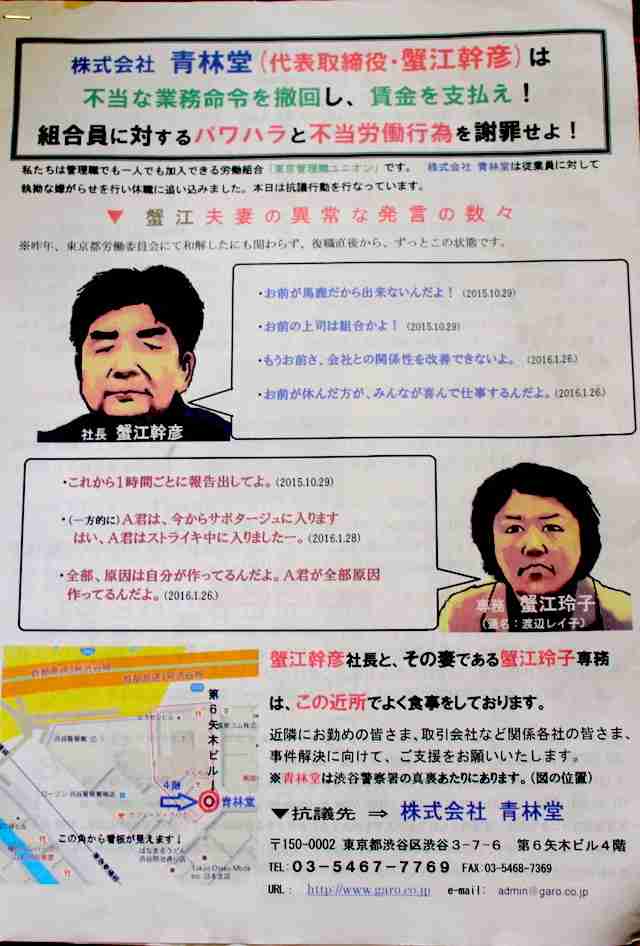 株式会社 青林堂(代表取締役・蟹江幹彦)は
不当な業務命令を撤回し、賃金を支払え！
組合員に対するパワハラと不当労働行為を謝罪せよ！
私たちは管理職でも一人でも加入できる労働組合「東京管理職ユニオン」です。 株式会社 青林堂は従業員に対して
執拗な嫌がらせを行い休職に追い込みました。本日は抗議行動を行なっています。
▼ 蟹江夫妻の異常な発言の数々
※昨年、東京都労働委員会にて和解したにも関わらず、復職直後から、ずっとこの状態です。
・お前が馬鹿だから出来ないんだよ！ (2015.10.29)
・お前の上司は組合かよ！ (2015.10.29)
・もうお前さ、会社との関係性を改善できないよ。 (2016.1.26.)
・お前が休んだ方が、みんなが喜んで仕事するんだよ。(2016.1.26.)
社長 蟹江幹彦
・これから1時間ごとに報告出してよ。(2015.10.29)
・(一方的に)A君は、今からサボタージュに入ります
はい、A君はストライキ中に入りましたー。(2016.1.28)
・全部、原因は自分が作ってるんだよ。A君が全部原因
作ってるんだよ。(2016.1.26.)
専務 蟹江玲子
(通名：渡辺レイ子)
蟹江幹彦社長と、その妻である蟹江玲子専務
は、この近所でよく食事をしております。
近隣にお勤めの皆さま、取引会社など関係各社の皆さま、
事件解決に向けて、ご支援をお願いいたします。
※青林堂は渋谷警察署の真裏あたりにあります。(図の位置)
▼抗議先 ⇒ 株式会社 青林堂
〒150-0002 東京都渋谷区渋谷3-7-6 第6矢木ビル4階
TEL：03-5467-7769 FAX 03-5468-7369
URL： http://www.garo.co.jp e-mail： admin@garo.co.jp
首都高速3号渋谷線
第6矢木ビル
4階
青林堂
この角から看板が見えます！